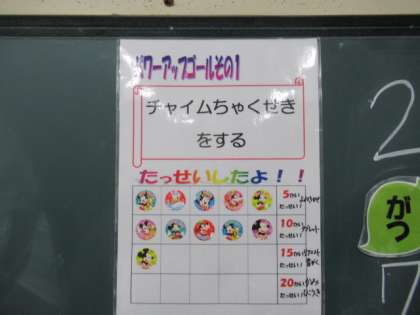 パワーアップゴールその1
チャイムちゃくせき
をする
たっせいしたよ！！
5かい
たっせい！
10かい
たっせい！
15かい
たっせい！
20かい
たっせい！
2
がつ
7